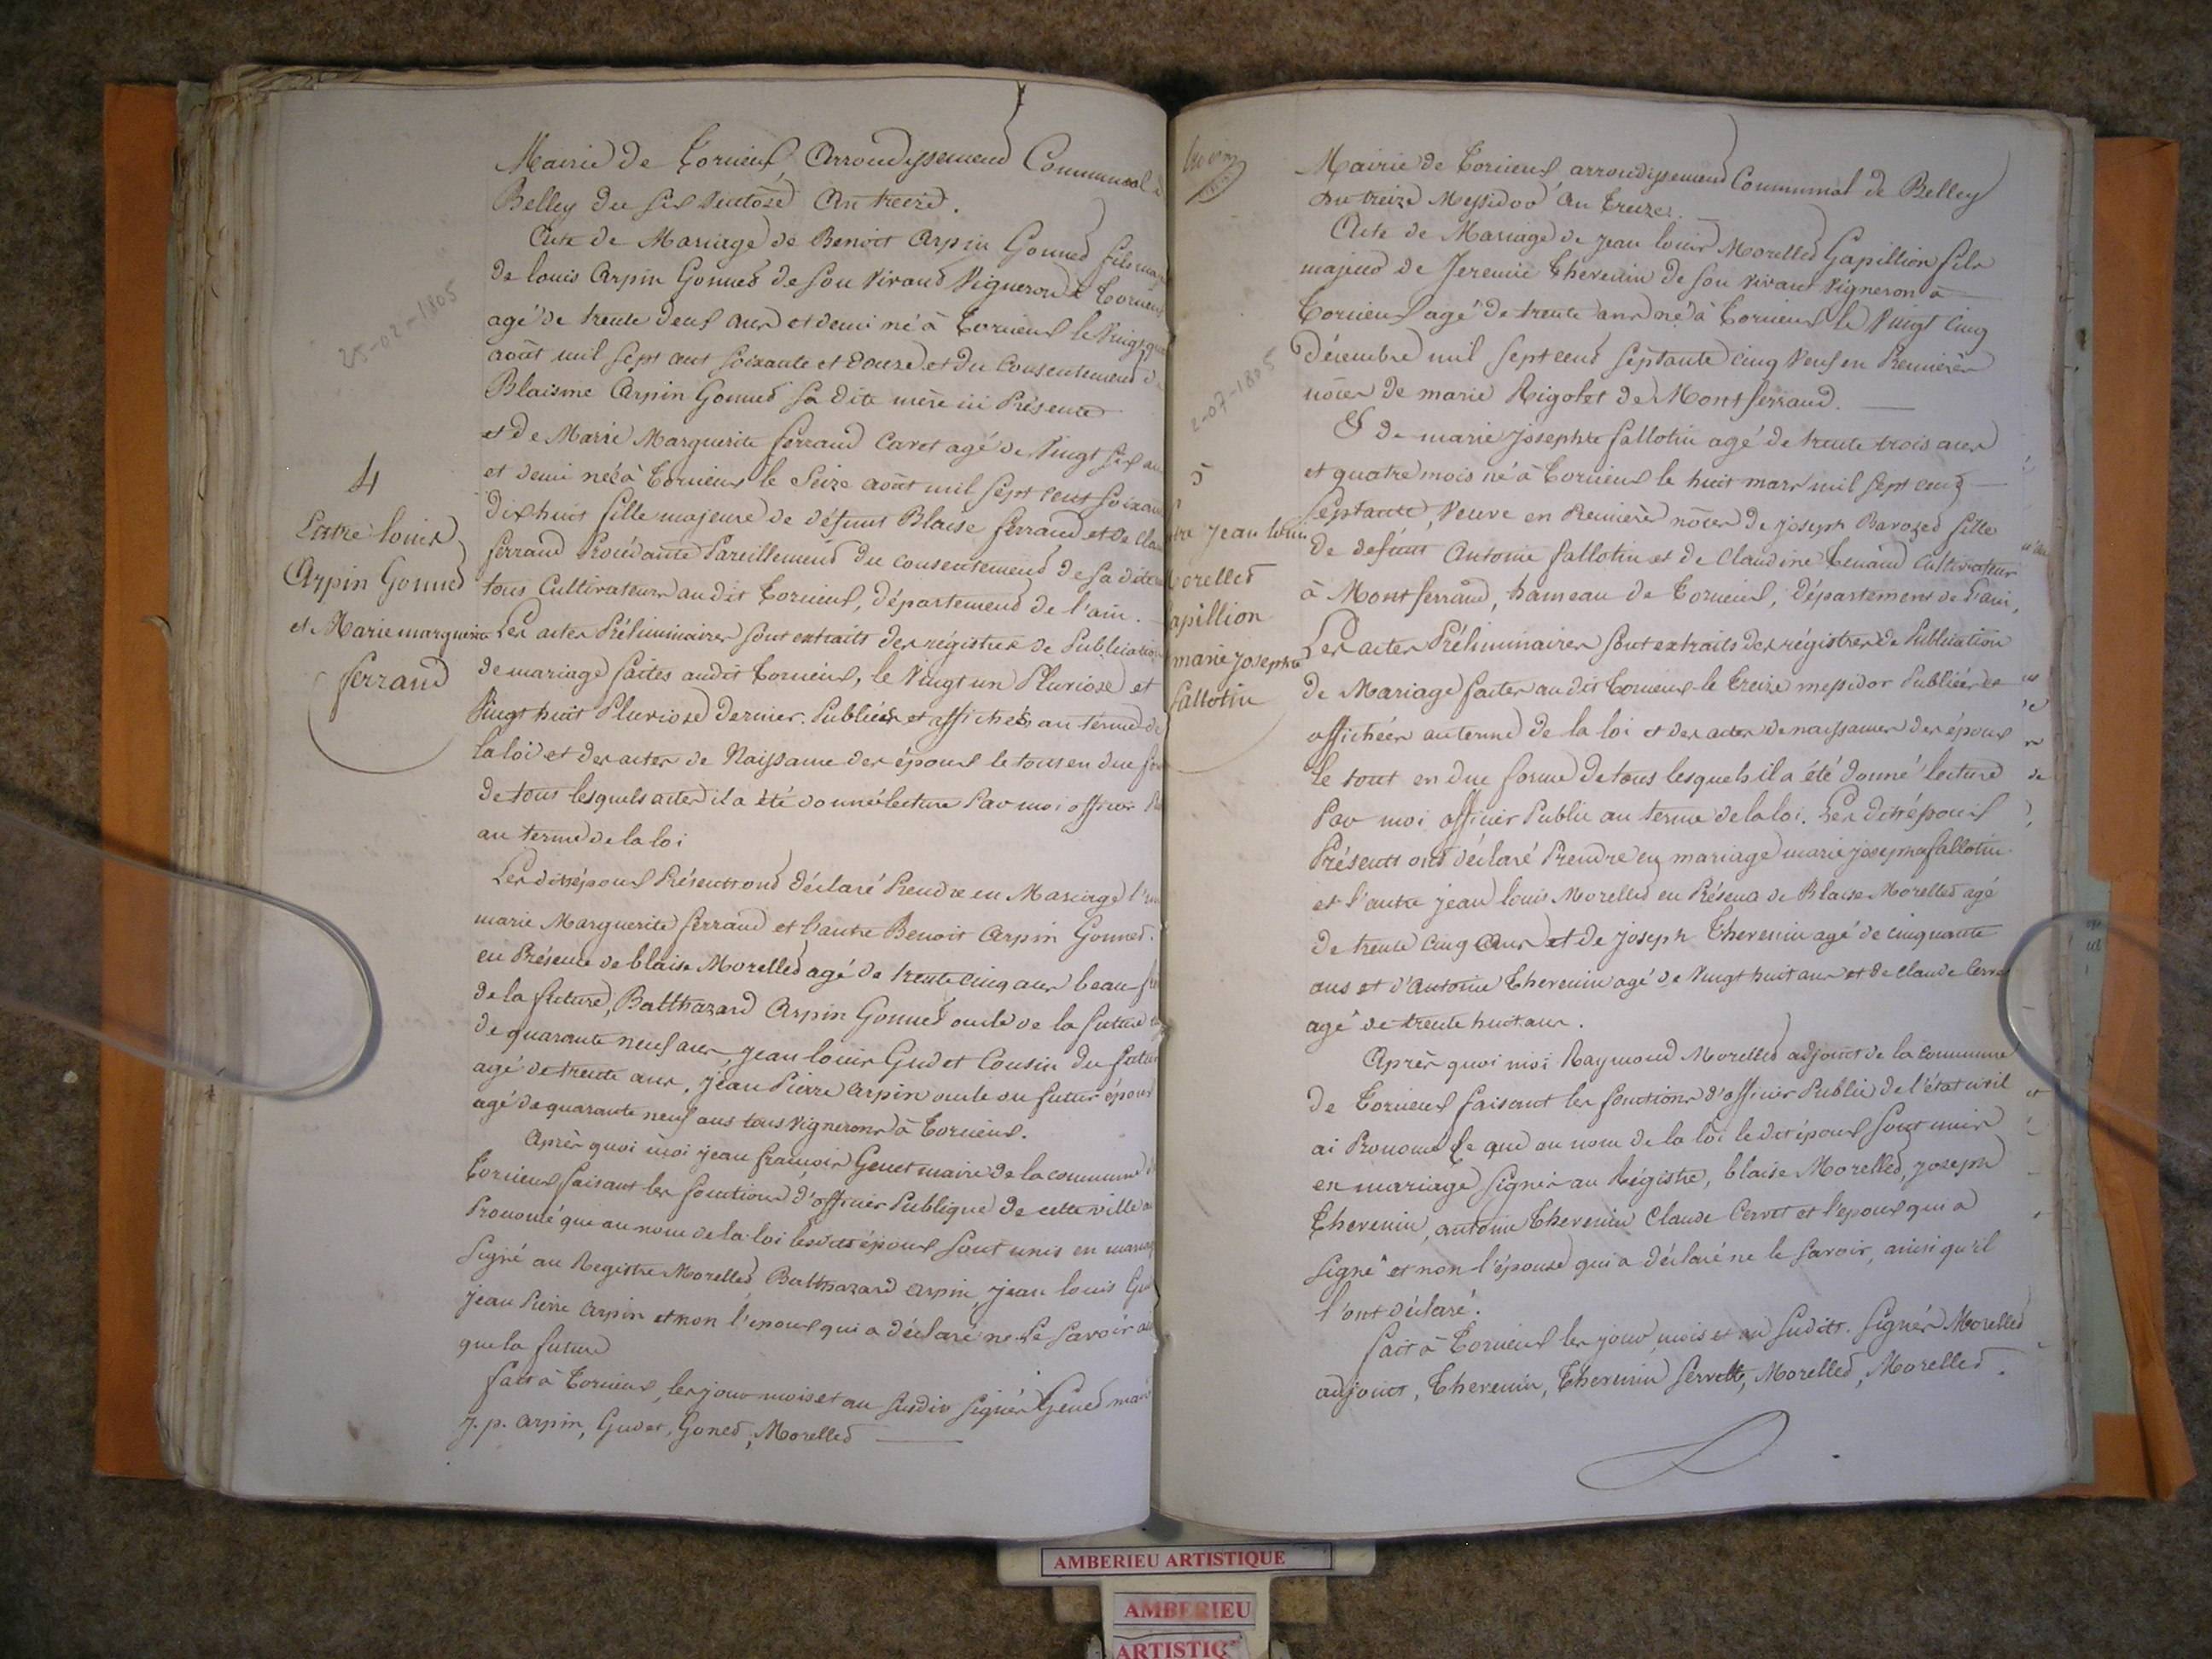 Mairie de Torcieux, Arrondissement Communal
Belley du six Ventôse An treize.
Acte de Mariage de Benoit Arpin Gonned fils
de louis Arpin Gonned de son vivant Vigneron à Torcieux
agé de trente deux ans et demi né à Torcieux le Vingt
août mil sept cent soixante et douze et du Consentement
Blaisine Arpin Gonned sa dite mère ici Présente
et de Marie Marguerite ferrand Cavet agé de Vingt six
et demi née à Torcieux le Seize août mil sept cent soixante
dix huit fille majeure de défunt Blaise ferrand et de
ferrand Procédante Pareillement du consentement de sa dite
tous Cultivateurs au dit Torcieux, département de l'ain.
Les actes Préliminaires sont extraits des régistres de Publication
de mariage faites audit Torcieux, le Vingt un Pluviose et
Vingt huit Pluviose dernier. Publiées et affichés au terme de
la loi et des actes de Naissance des époux le tous en due
de tous lesquels actes il a été donné lecture Par moi officier
au terme de la loi
Les dits époux Présents ont déclaré Prendre en Mariage
marie Marguerite ferrand et l'autre Benoit Arpin Gonned.
en Présence de blaise Morelled agé de trente cinq ans beau
de la future, Balthazard Arpin Gonned oncle de la future
de quarante neuf ans, jean louis Gudet Cousin du futur
agé de trente ans, jean Pierre arpin oncle du futur époux
agé de quarante neuf ans tous Vignerons à Torcieux.
Après quoi moi jean françois Genet maire de la commune
Torcieux faisant les fonctions d'officier Publique de cette ville
Prononcé que au nom de la loi lesdits époux sont unis en
signé au Registre Morelled, Balthazard arpin, jean louis
jean Pierre arpin et non l'epoux qui a déclaré ne le savoir
que la future
fait à Torcieux, les jour mois et an susdit signés Gened
j. p. arpin, Gudet, Goned, Morelled
25-02-1805
4
Entre louis
Arpin Gonned
et Marie marguerite
ferrand
Mairie de Torcieux arrondissement Communal de Belley
du treize Messidor An treize.
Acte de Mariage de jean louis Morelled Gapillion fils
majeur de Jeremie Thevenin de son vivant Vigneron à
Torcieux agé de trente ans né à Torcieux le Vingt Cinq
décembre mil sept cent septante cinq Veuf en Premières
nôces de marie Rigolet de Montferrand.
& de marie josephte fallotin agé de trente trois ans
et quatre mois né à Torcieux le huit mars mil sept cent
Septante, Veuve en Première nôces de joseph Barozed fille
de defunt Antoine fallotin et de Claudine Tenand Cultivateur
à Montferrand, hameau de Torcieux, département de L'ain,
Les actes Préliminaires sont extraits des régistres de Publication
de Mariage faites au dit Torcieux le treize messidor Publiées et
affichées au terme de la loi et des actes de naissances des époux
Le tout en due forme de tous lesquels il a été donné lecture
Par moi officier Public au terme de la loi. Les dits époux
Présents ont déclaré Prendre en mariage marie josephte fallotin
et l'autre jean louis Morelled en Présence de Blaise Morelled agé
de trente cinq ans et de joseph Thevenin agé de cinquante
ans et d'Antoine Thevenin agé de Vingt huit ans et de Claude
agé de trente huit ans.
Après quoi moi Raymond Morelled adjoint de la commune
de Torcieux faisant les fonctions d'officier Public de l'état civil
ai Prononcé que au nom de la loi le dit époux sont unis
en mariage signés au Régistre, blaise Morelled, joseph
Thevenin, antoine Thevenin Claude Cervet et l'epoux qui a
signé et non l'épouse qui a déclaré ne le savoir, ainsi qu'il
l'ont déclaré.
fait à Torcieux les jour, mois et an susdits. Signés Morelled
adjoint, Thevenin, Thevenin Servette, Morelled, Morelled.
2-07-1805
5
jean louis
Morelled
marie josephte
fallotin
AMBERIEU ARTISTIQUE
AMBERIEU
ARTISTIQ